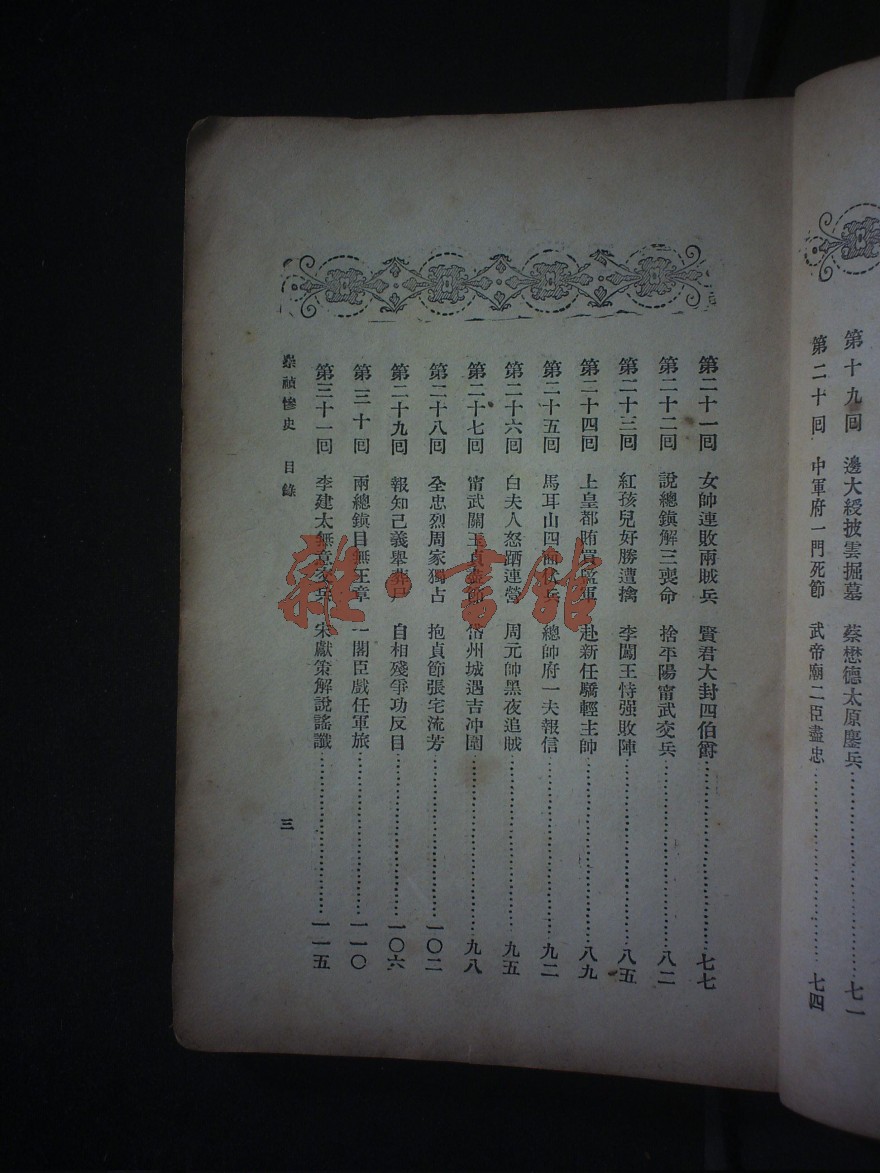 第十九回 邊大綬披雲掘墓 蔡懋德太原鏖兵 七一
第二十回 中軍府一門死節 武帝廟二臣盡忠 七四
第二十一回 女帥連敗兩賊兵 賢君大封四伯爵 七七
第二十二回 說總鎮解三喪命 捨平陽甯武交兵 八二
第二十三回 紅孩兒好勝遭擒 李闖王恃强敗陣 八五
第二十四回 上皇都賄買監軍 赴新任驕輕主帥 八九
第二十五回 馬耳山四面伏兵 總帥府一夫報信 九二
第二十六回 白夫人怒踹連營 周元帥黑夜追賊 九五
第二十七回 甯武關玉貞盡節 岱州城遇吉冲圍 九八
第二十八回 全忠烈周家獨占 抱貞節張宅流芳 一〇二
第二十九回 報知己義舉葬尸 自相殘爭功反目 一〇六
第三十回 兩總鎮目無王章 一閣臣戲任軍旅 一一〇
第三十一回 李建太無意交兵 宋獻策解說謠讖 一一五
崇禎慘史 目錄 三
雜·書館